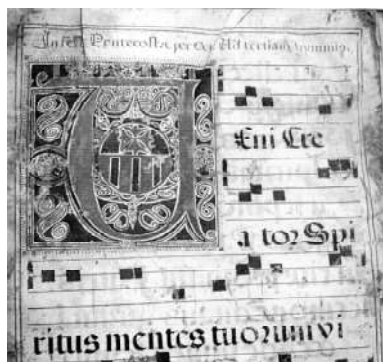 In festo Pentecostes per Oct. Ad tertiam Hymnus.
VEni Cre
a tor Spi
ritus mentes tuorum vi